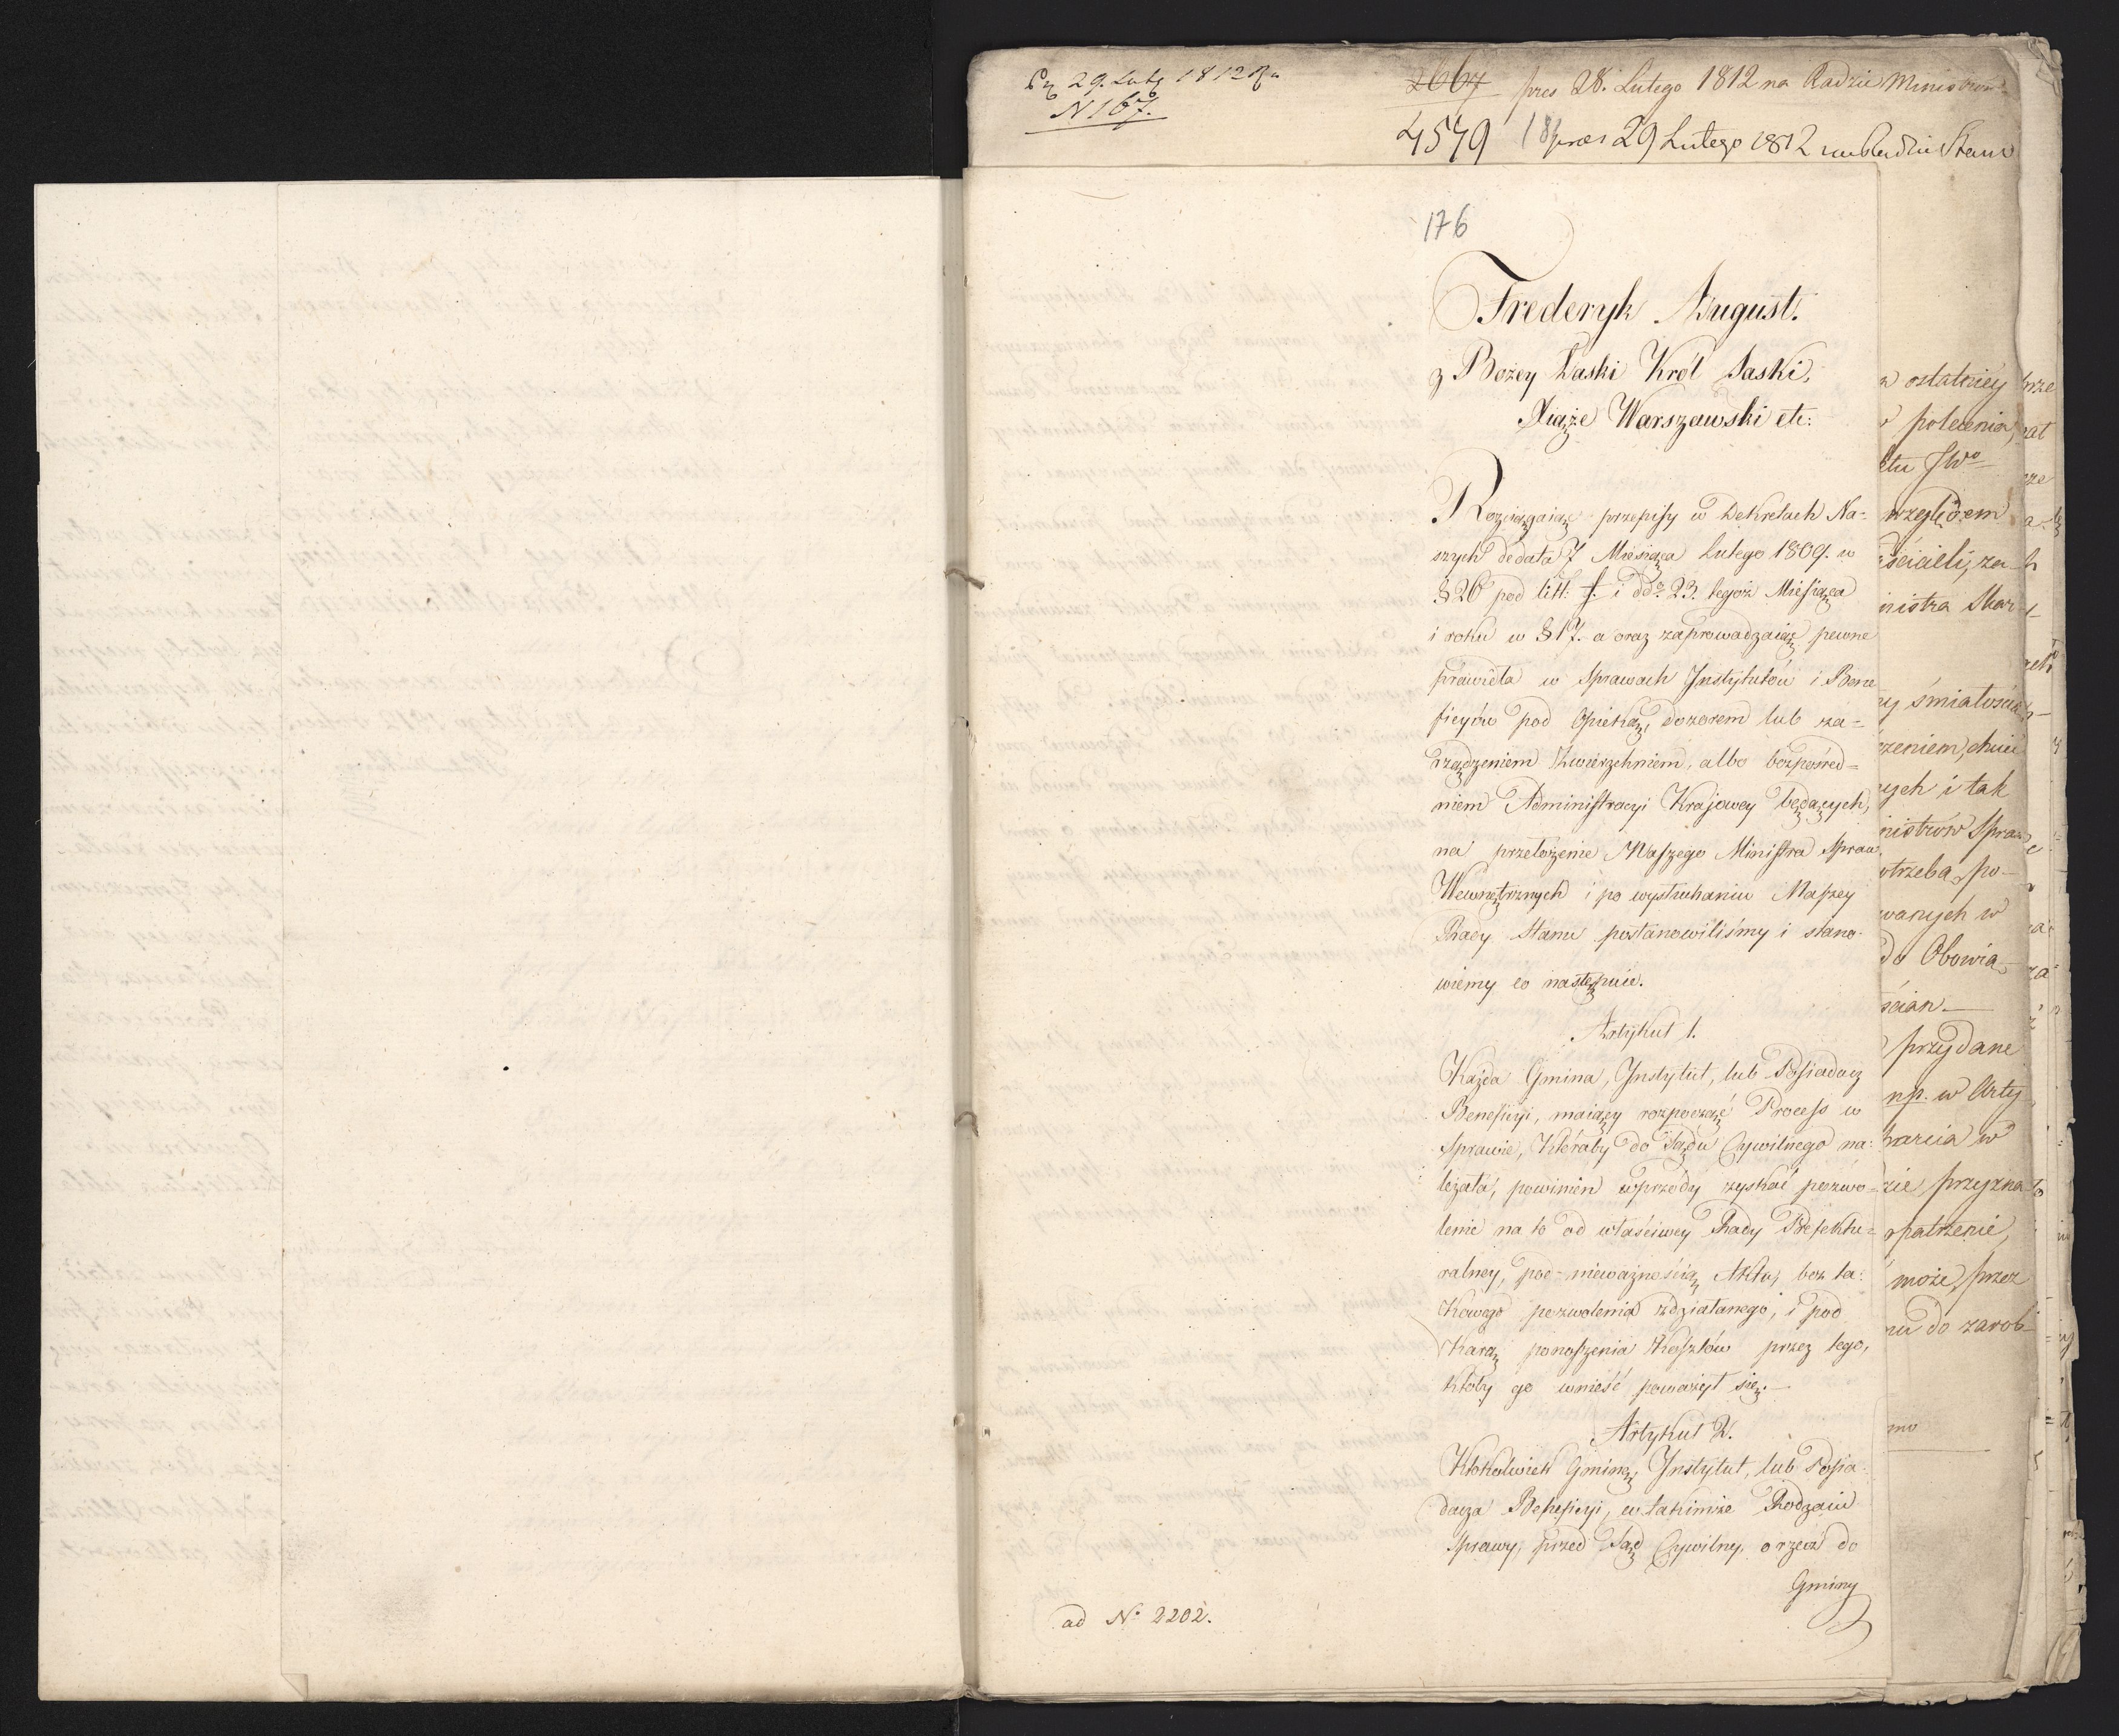 29. Lut 1812 R
N 167.
2667 pres 28. Lutego 1812 na Radzie Ministrów
4579 pres 29 Lutego 1812 na Radzie Stanu
176
Frederyk August.
z Bożey Łaski Król Saski,
Xiąże Warszawski etc:
Rozciągaiąc przepisy w Dekretach Na=
szych de data 7 Miesiąca Lutego 1809. w
§ 26 pod litt: f. i dd° 23. tegoż Miesiąca
i roku w § 17. a oraz zaprowadzaiąc pewne
prawidła w Sprawach Instytutów i Bene
ficyów pod Opieką, dozorem lub za=
rządzeniem Zwierzchniem, albo bezpośred=
niem Administracyi Krajowey będących,
na przełożenie Naszego Ministra Spraw
Wewnętrznych i po wysłuchaniu Naszey
Rady Stanu postanowiliśmy i stano-
wiemy co następuie.
Artykuł 1.
Każda Gmina, Instytut, lub Posiadacz
Beneficyi, maiący rozpocząć Process w
Sprawie, któraby do Sądu Cywilnego na=
leżała, powinien wprzódy zyskać pozwo=
lenie na to od właściwey Rady Prefektu=
ralney, pod nieważnością Aktu, bez ta=
kowego pozwolenia zdziałanego, i pod
Karą ponoszenia Kosztów przez tego,
ktoby go wnieść poważył się.
Artykuł 2.
Ktokolwiek Gminę, Instytut, lub Posia=
dacza Beneficyi, w takimże Rodzaiu
Sprawy, przed Sąd Cywilny, o rzecz do
Gminy
ad N° 2202.
ostatniey
polecenia,
etu JW°
względem
ścicieli, za
nistra Skar
y śmiałości
zeniem, chwi
ych i tak
nistrów Spraw
otrzeba, po-
wanych w
do Obowią
ścian
przydane
np. w Arty
parcia w
zie przyzna
patrzenie,
może, przez
nu do zarob
mo